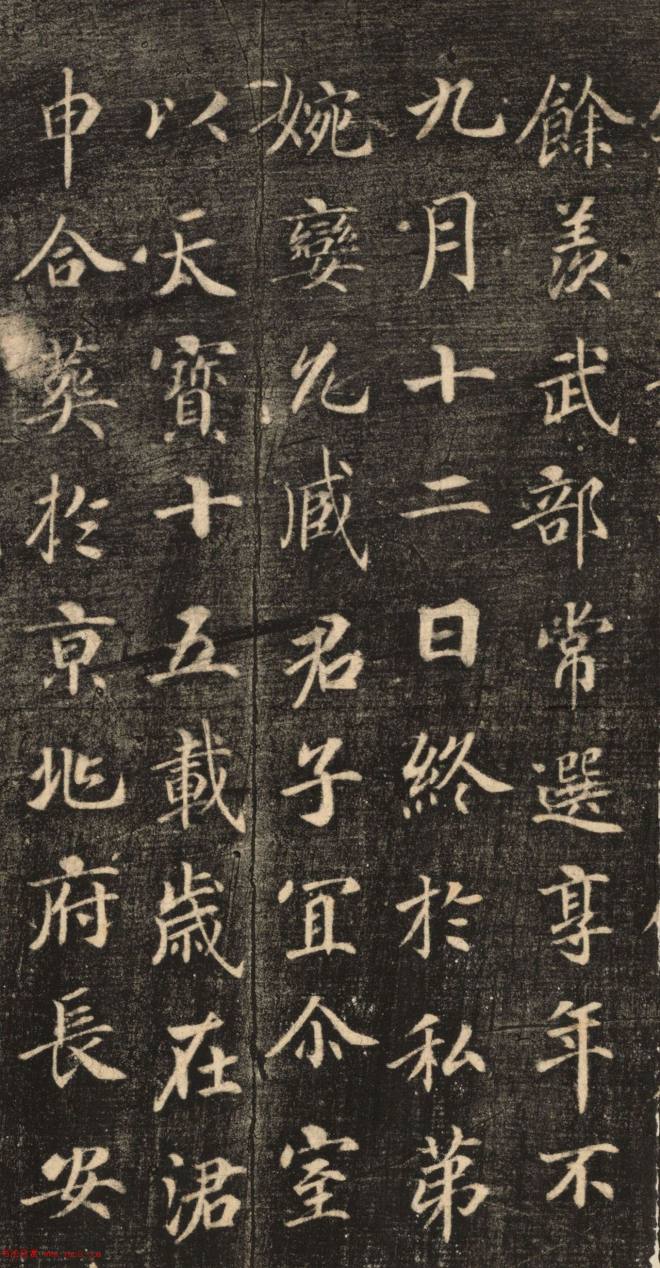 餘羨武部常選享年不
九月十二日終於私苐
婉孌允臧君子宜尒室
以天寶十五載歲在涒
申合葬於京兆府長安